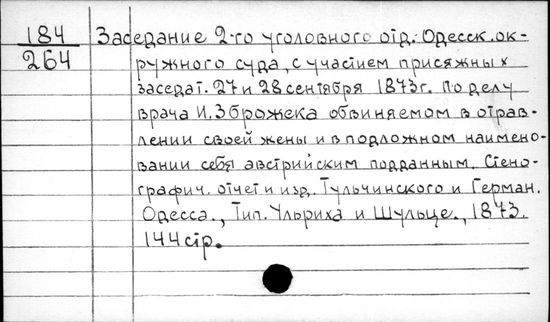 184 Заседание 2-го уголовного отд. Одесск. ок-
264 ружного суда, с участием присяжных
заседат. 27 и 28 сентября 1873 г. по делу
врача И. Зброжека обвиняемом в отрав-
лении своей жены и в подложном наимено-
вании себя австрийским подданным. Стено-
графич. отчет и изд. Тульчинского и Герман.
Одесса., Тип. Ульриха и Шульце., 1873.
144 стр.